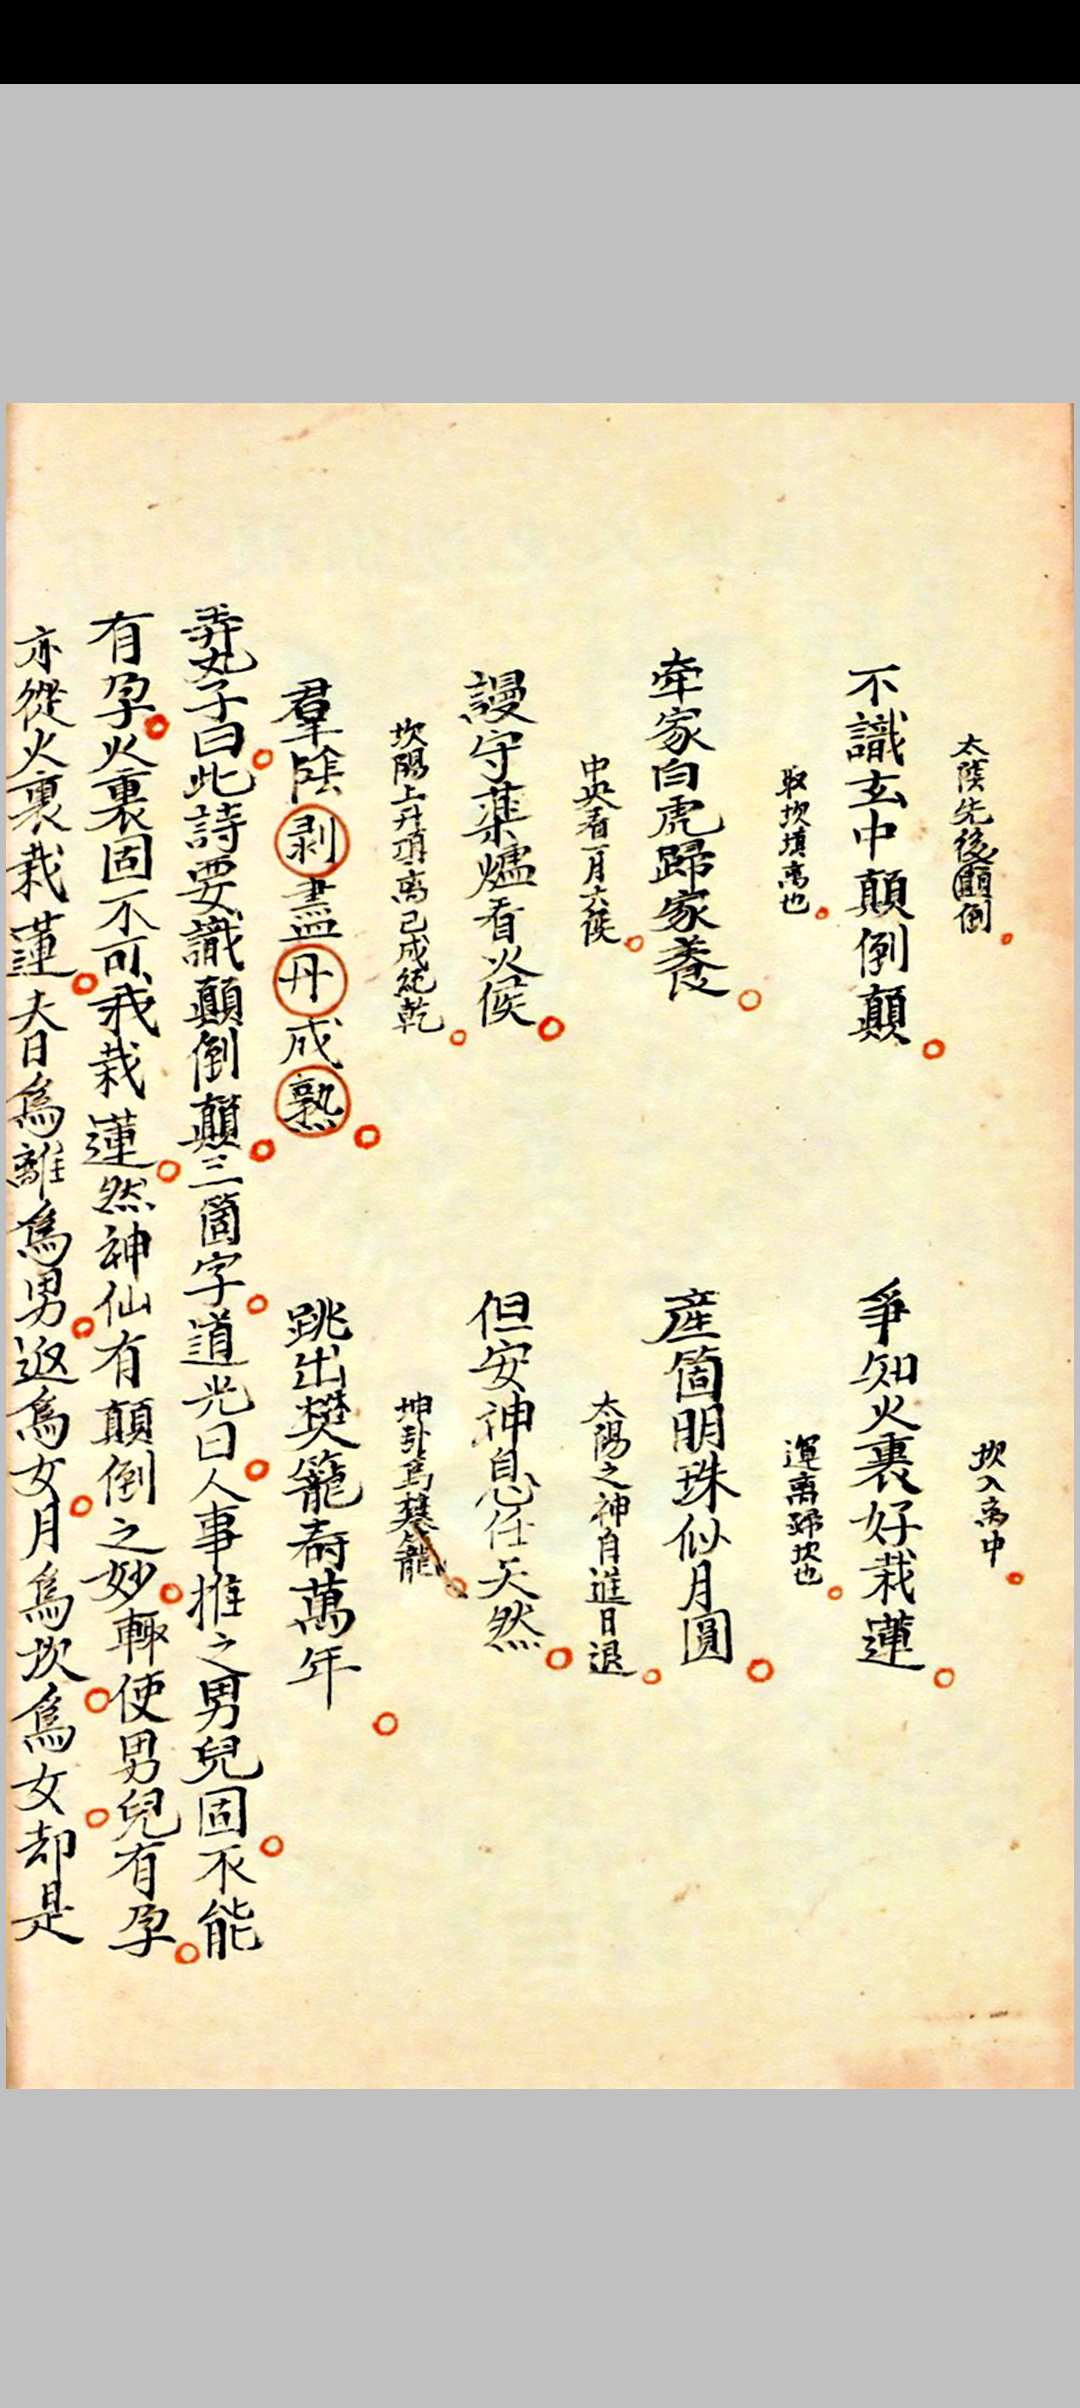 太陰先後顛倒
坎入离中
不識玄中顛倒顛
爭知火裏好栽蓮
取坎填离也
運离歸坎也
牽家白虎歸家養
產箇明珠似月圓
中央看一月六候
太陽之神自進日退
謾守藥爐看火候
但安神息任天然
坎陽上升項离已成純乾
坤卦為樊籠
羣陰剥盡丹成熟
跳出樊籠壽萬年
弄丸子曰此詩要識顛倒顛三箇字道光曰人事推之男兒固不能
有孕火裏固不可我栽蓮然神仙有顛倒之妙輙使男兒有孕
亦從火裏栽蓮夫日為離為男返為女月為坎為女却是